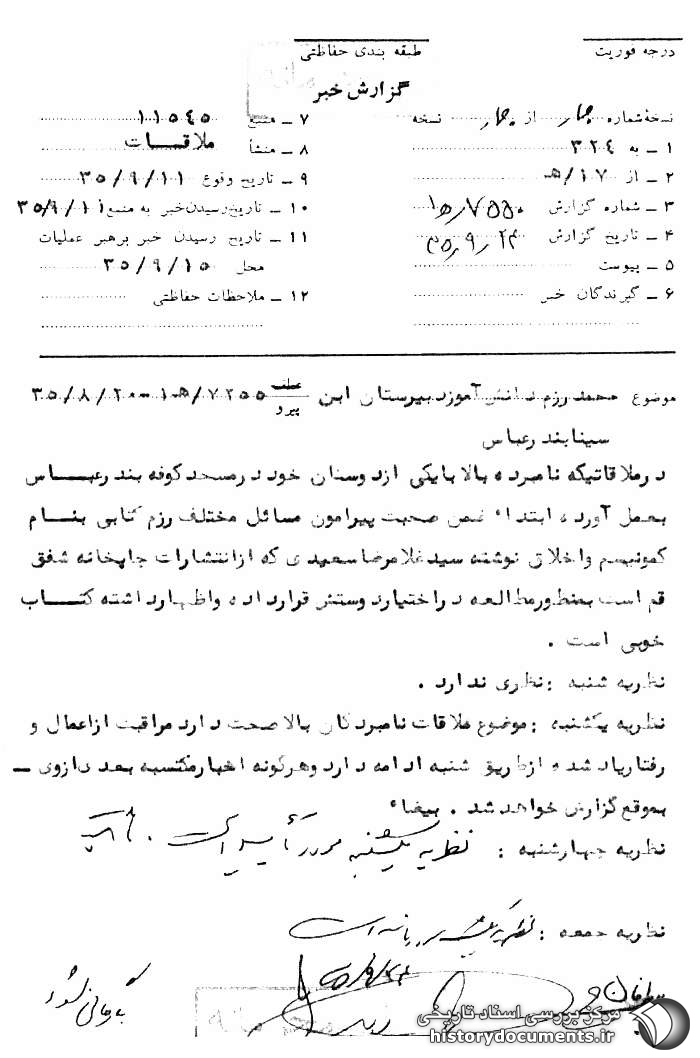 درجه فوریت
طبقه بندی حفاظتی
گزارش خبر
نسخه شماره چهار از چهار نسخه
۱ ـ به ۳۲۴
۲ ـ از ۱۷/هـ
۳ ـ شماره گزارش
۴ ـ تاریخ گزارش ۳۵٫۹٫۲۴
۵ ـ پیوست
۶ ـ گیرندگان خبر
۷ ـ منبع ۱۱۵۴۵
۸ ـ منشأ ملاقات
۹ ـ تاریخ وقوع ۳۵/۹/۱۱
۱۰ ـ تاریخ رسیدن خبر به منبع ۳۵/۹/۱۱
۱۱ ـ تاریخ رسیدن خبر برهبر عملیات
محل ۳۵/۹/۱۵
۱۲ ـ ملاحظات حفاظتی
موضوع محمد رزم دانش آموز دبیرستان ابن عطف پیرو ۷۲۵۵/۱۰هـ ـ ۳۵/۸/۲۰
سینا بندرعباس
در ملاقاتیکه نامبرده بالا با یکی از دوستان خود در مسجد کوفه بندرعباس
بعمل آورده ابتداء ضمن صحبت پیرامون مسائل مختلف رزم کتابی بنام
کمونیسم و اخلاق نوشته سید غلامرضا سعیدی که از انتشارات چاپخانه شفق
قم است بمنظور مطالعه در اختیار دوستش قرار داده و اظهار داشته کتاب
خوبی است .
نظریه شنبه : نظری ندارد .
نظریه یکشنبه : موضوع ملاقات نامبردگان بالا صحت دارد مراقبت از اعمال و
رفتار یاد شده از طریق شنبه ادامه دارد و هرگونه اخبار مکتسبه بعدی از وی ـ
بموقع گزارش خواهد شد . بیضاء
نظریه چهارشنبه : نظریه یکشنبه مورد تأیید است .
نظریه جمعه :
بایگانی شود
مرکز بررسی اسناد تاریخی
historydocuments.ir